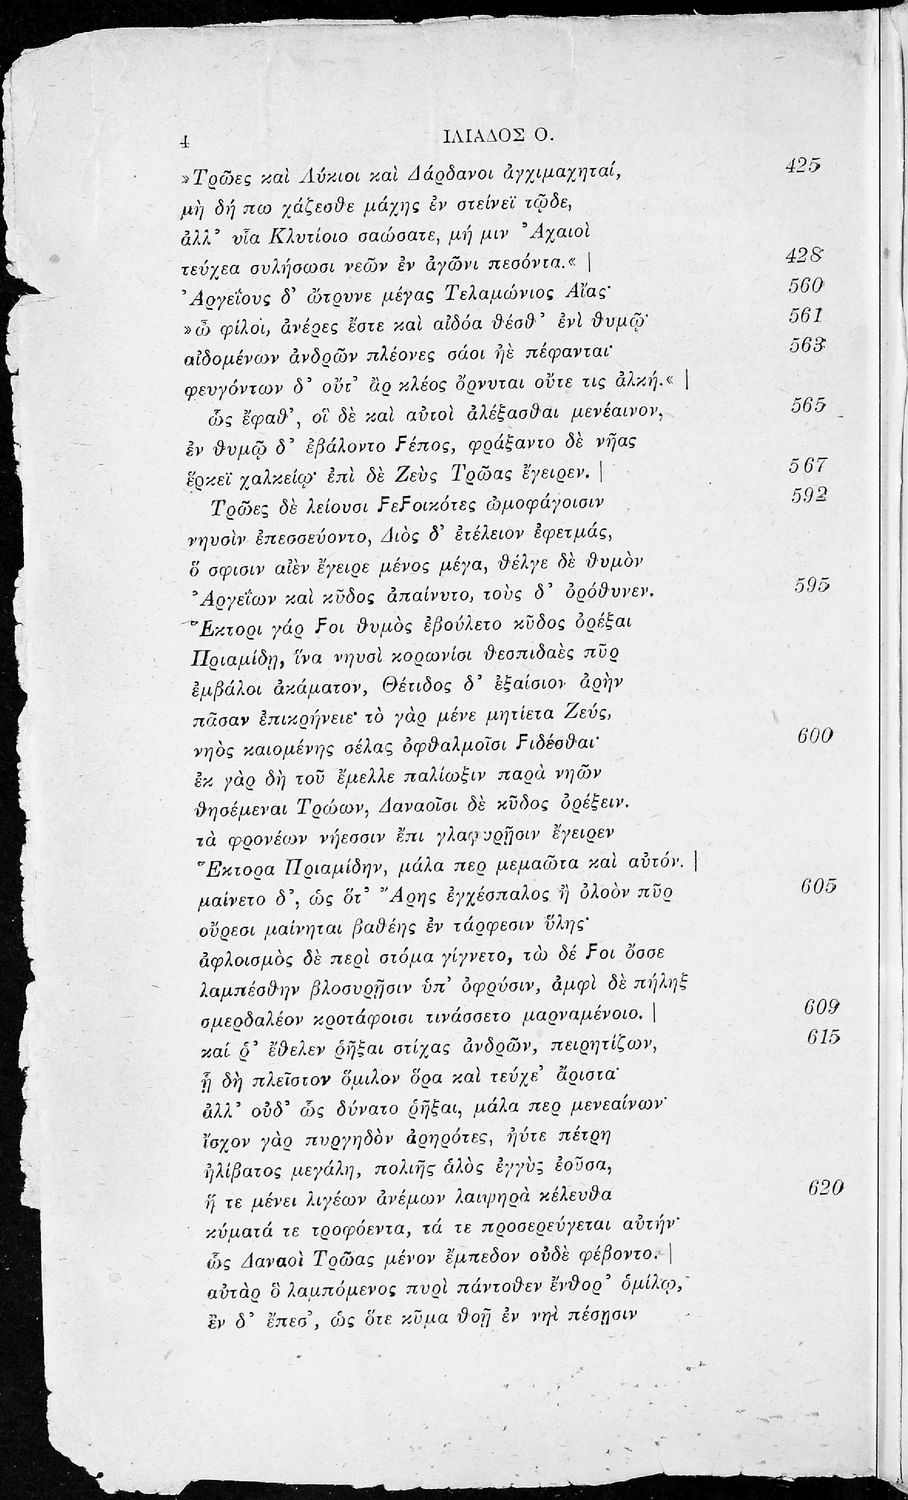 4 ΙΛΙΑΔΟΣ Ο.
»Τρῶες καὶ Λύκιοι καὶ Δάρδανοι ἀγχιμαχηταί, 425
μὴ δή πω χάζεσθε μάχης ἐν στείνεϊ τῷδε,
ἀλλ᾽ υἷα Κλυτίοιο σαώσατε, μή μιν Ἀχαιοὶ
τεύχεα συλήσωσι νεῶν ἐν ἀγῶνι πεσόντα.« | 428
Ἀργεΐους δ᾽ ὤτρυνε μέγας Τελαμώνιος Αἴας· 560
»ὦ φίλοι, ἀνέρες ἔστε καὶ αἰδόα θέσθ᾽ ἐνὶ θυμῷ· 561
αἰδομένων ἀνδρῶν πλέονες σάοι ἠὲ πέφανται· 563
φευγόντων δ᾽ οὔτ᾽ ἂρ κλέος ὄρνυται οὔτε τις ἀλκή.« |
ὣς ἔφαθ᾽, οἳ δὲ καὶ αὐτοὶ ἀλέξασθαι μενέαινον, 565
ἐν θυμῷ δ᾽ ἐβάλοντο ϝέπος, φράξαντο δὲ νῆας
ἕρκεϊ χαλκείῳ· ἐπὶ δὲ Ζεὺς Τρῶας ἔγειρεν. | 567
Τρῶες δὲ λείουσι ϝεϝοικότες ὠμοφάγοισιν 592
νηυσὶν ἐπεσσεύοντο, Διὸς δ᾽ ἐτέλειον ἐφετμάς,
ὅ σφισιν αἰὲν ἔγειρε μένος μέγα, θέλγε δὲ θυμὸν
Ἀργεΐων καὶ κῦδος ἀπαίνυτο, τοὺς δ᾽ ὀρόθυνεν. 595
Ἕκτορι γάρ ϝοι θυμὸς ἐβούλετο κῦδος ὀρέξαι
Πριαμίδῃ, ἵνα νηυσὶ κορωνίσι θεσπιδαὲς πῦρ
ἐμβάλοι ἀκάματον, Θέτιδος δ᾽ ἐξαίσιον ἀρὴν
πᾶσαν ἐπικρήνειε· τὸ γὰρ μένε μητίετα Ζεύς,
νηὸς καιομένης σέλας ὀφθαλμοῖσι ϝιδέσθαι· 600
ἐκ γὰρ δὴ τοῦ ἔμελλε παλίωξιν παρὰ νηῶν
θησέμεναι Τρώων, Δαναοῖσι δὲ κῦδος ὀρέξειν.
τὰ φρονέων νήεσσιν ἔπι γλαφυρῇσιν ἔγειρεν
Ἕκτορα Πριαμίδην, μάλα περ μεμαῶτα καὶ αὐτόν. |
μαίνετο δ᾽, ὡς ὅτ᾽ Ἄρης ἐγχέσπαλος ἢ ὀλοὸν πῦρ 605
οὔρεσι μαίνηται βαθέης ἐν τάρφεσιν ὕλης·
ἀφλοισμὸς δὲ περὶ στόμα γίγνετο, τὼ δέ ϝοι ὄσσε
λαμπέσθην βλοσυρῇσιν ὑπ᾽ ὀφρύσιν, ἀμφὶ δὲ πήληξ
σμερδαλέον κροτάφοισι τινάσσετο μαρναμένοιο. | 609
καί ῥ᾽ ἔθελεν ῥῆξαι στίχας ἀνδρῶν, πειρητίζων, 615
ᾗ δὴ πλεῖστον ὅμιλον ὅρα καὶ τεύχε᾽ ἄριστα·
ἀλλ᾽ οὐδ᾽ ὧς δύνατο ῥῆξαι, μάλα περ μενεαίνων·
ἴσχον γὰρ πυργηδὸν ἀρηρότες, ἠύτε πέτρη
ἠλίβατος μεγάλη, πολιῆς ἁλὸς ἐγγὺς ἐοῦσα,
ἥ τε μένει λιγέων ἀνέμων λαιψηρὰ κέλευθα 620
κύματά τε τροφόεντα, τά τε προσερεύγεται αὐτήν·
ὣς Δαναοὶ Τρῶας μένον ἔμπεδον οὐδὲ φέβοντο. |
αὐτὰρ ὃ λαμπόμενος πυρὶ πάντοθεν ἔνθορ᾽ ὁμίλῳ,
ἐν δ᾽ ἔπεσ᾽, ὡς ὅτε κῦμα θοῇ ἐν νηὶ πέσῃσιν